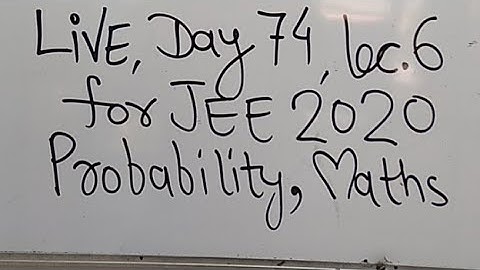 LiVE, Day 74, Lec.6
for JEE 2020
Probability, Maths